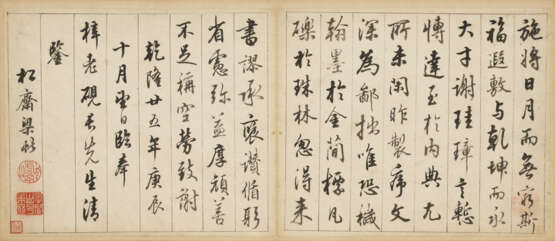 施將日月而無窮斯
福遐敷與乾坤而永
大才謝珪璋言慙
博達至於內典尤
所未閑昨製序文
深為鄙拙唯恐穢
翰墨於金簡標瓦
礫於珠林忽得來
書謬承褒讚循躬
省慮彌益厚顏善
不足稱空勞致謝
乾隆廿五年庚辰
十月望日臨奉
梓老硯長先生清
鑒
松齋梁巘